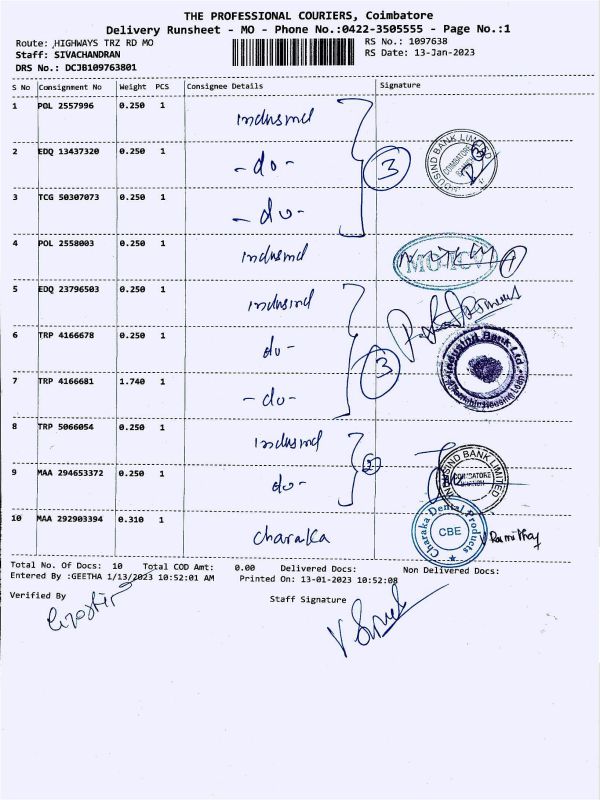 THE PROFESSIONAL COURIERS, Coimbatore
Delivery Runsheet - MO - Phone No.:0422-3505555 - Page No.:1
Route: ,HIGHWAYS TRZ RD MO
RS No.: 1097638
Staff: SIVACHANDRAN
RS Date: 13-Jan-2023
DRS No.: DCJB109763801
S No Consignment No Weight PCS Consignee Details Signature
1 POL 2557996 0.250 1 Indusind
2 EDQ 13437320 0.250 1 -do- 3 INDUSIND BANK LIMITED COIMBATORE BRANCH
3 TCG 50307073 0.250 1 -do-
4 POL 2558003 0.250 1 Indusind 1
5 EDQ 23796503 0.250 1 Indusind
6 TRP 4166678 0.250 1 do- IndusInd Bank Ltd.
7 TRP 4166681 1.740 1 -do- 3 Affordable Housing Loan
8 TRP 5066054 0.250 1 Indusind
9 MAA 294653372 0.250 1 do- 2 INDUSIND BANK LIMITED COIMBATORE BRANCH
10 MAA 292903394 0.310 1 Charaka Charaka Dental Products CBE
Total No. Of Docs: 10 Total COD Amt: 0.00 Delivered Docs: Non Delivered Docs:
Entered By :GEETHA 1/13/2023 10:52:01 AM Printed On: 13-01-2023 10:52:08
Verified By
Staff Signature